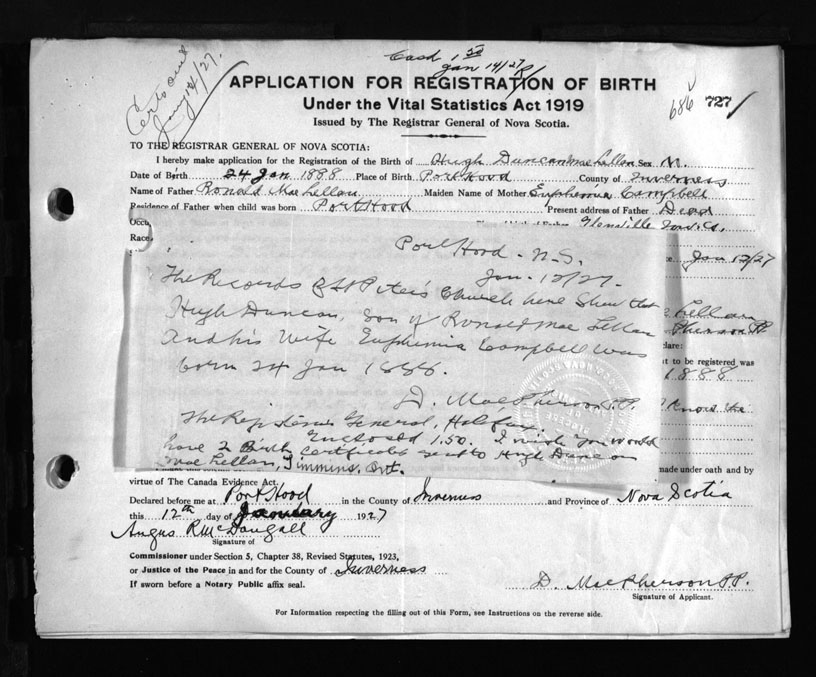 Cash 1.50
Jan 14/27
Certs sent
Jany 14/27.
APPLICATION FOR REGISTRATION OF BIRTH
686 727
Under the Vital Statistics Act 1919
Issued by The Registrar General of Nova Scotia.
TO THE REGISTRAR GENERAL OF NOVA SCOTIA:
I hereby make application for the Registration of the Birth of Hugh Duncan MacLellan Sex M.
Date of Birth 24 Jan 1888 Place of Birth Port Hood County of Inverness
Name of Father Ronald MacLellan Maiden Name of Mother Euphemia Campbell
Residence of Father when child was born Port Hood Present address of Father Dead
Occu Glenville Inv. Co.
Race
Jan 12/27
Port Hood - N.S.
Jan. 12/27.
The Records of St Peter's Church here show that
Hugh Duncan, son of Ronald MacLellan
And his Wife Euphemia Campbell was
born 24 Jan 1888.
D. MacPherson P.P.
The Registrar General, Halifax.
Enclosed 1.50. I wish you would
have 2 Birth certificates sent to Hugh Duncan
MacLellan, Timmins, Ont.
Lellan
Pherson PP
lare:
t to be registered was
1888
know the
made under oath and by
virtue of The Canada Evidence Act.
Declared before me at Port Hood in the County of Inverness and Province of Nova Scotia
this 12th day of January 1927
Angus R McDougall
Signature of
Commissioner under Section 5, Chapter 38, Revised Statutes, 1923,
or Justice of the Peace in and for the County of Inverness
If sworn before a Notary Public affix seal.
D. MacPherson P.P.
Signature of Applicant.
For Information respecting the filling out of this Form, see Instructions on the reverse side.